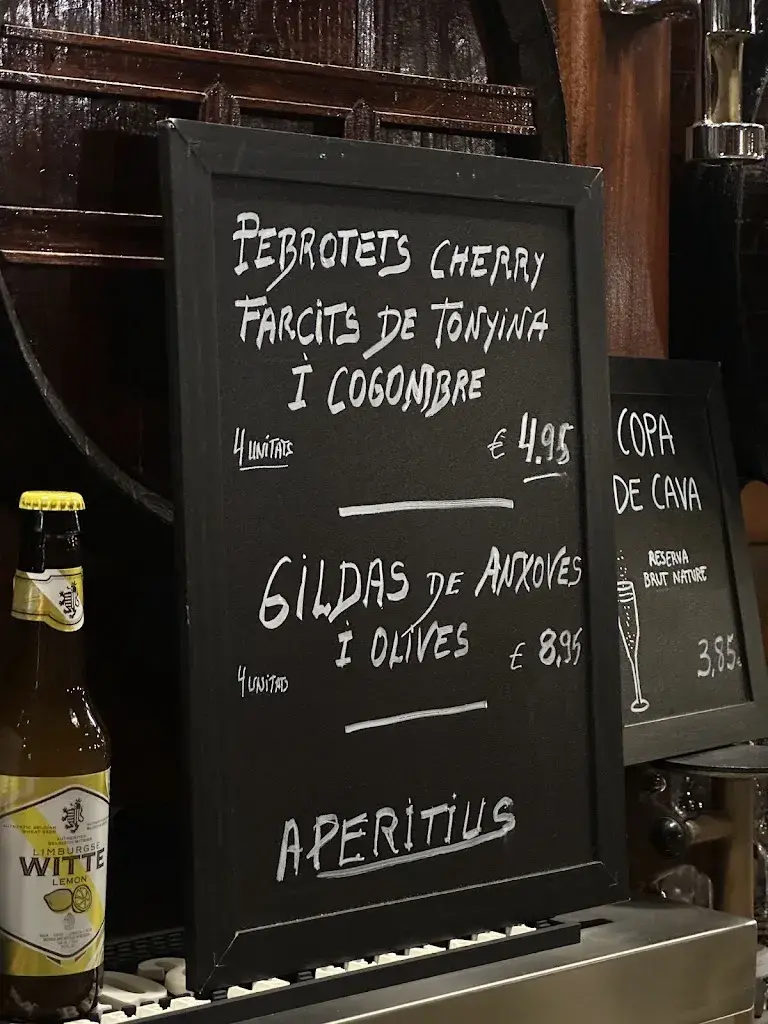 PEBROTETS CHERRY
FARCITS DE TONYINA
I COGOMBRE
4 UNITATS
€ 4.95
GILDAS DE ANXOVES
I OLIVES
€ 8,95
4 UNITATS
APERITIUS
COPA
DE CAVA
RESERVA
BRUT NATURE
3,85€
LIMBURGSE
WITTE
LEMON